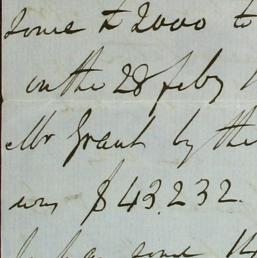 some £ 2000 to
on the 28 feby
Mr Grant by the
was $43.232.
some